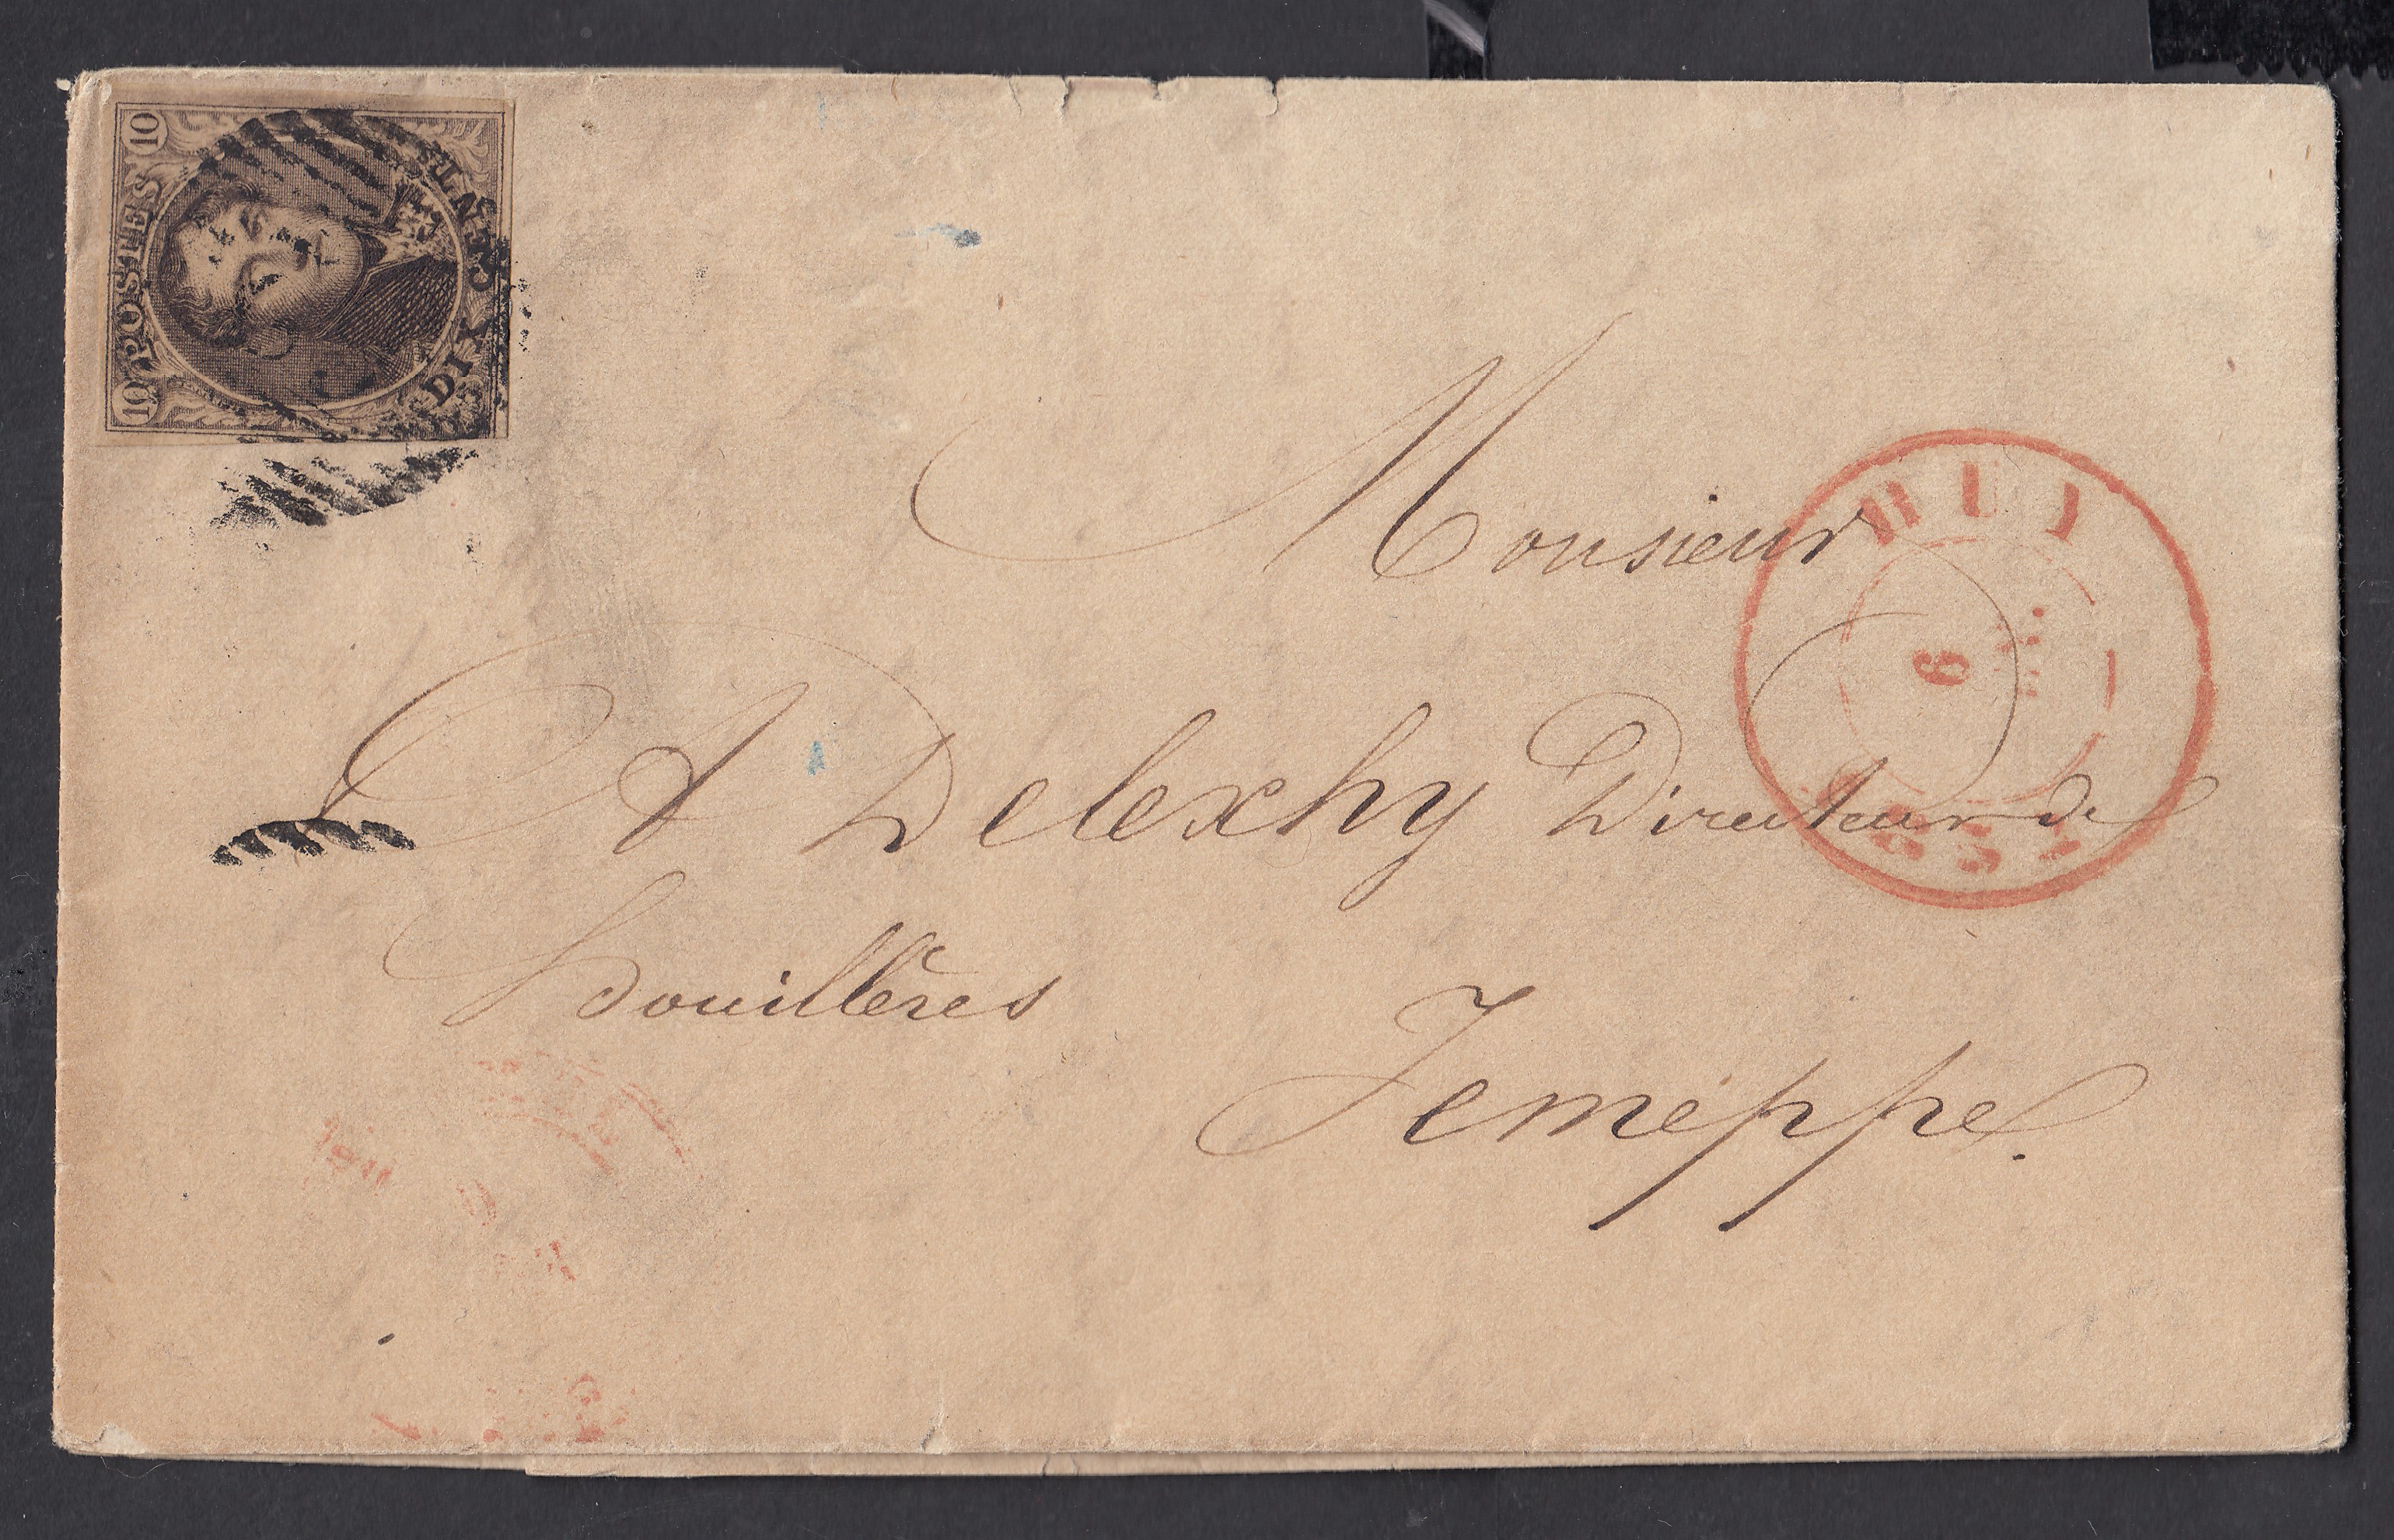 10 POSTES 10
DIX CENTS
Monsieur
HUY
6
A Delexhy Directeur de
houillères
Jemeppe.